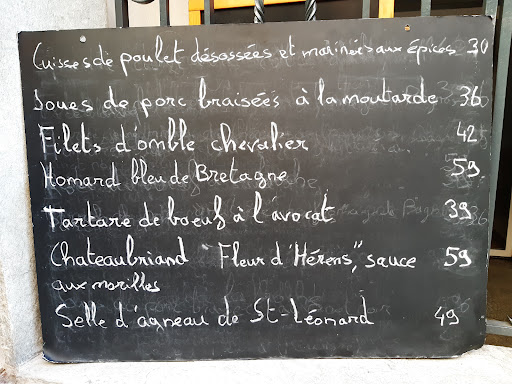 Cuisses de poulet désossées et marinées aux épices 30
Joues de porc braisées à la moutarde 36
Filets d'omble chevalier 42
Homard bleu de Bretagne 59
Tartare de boeuf à l'avocat 39
Chateaubriand "Fleur d'Hérens", sauce 59
aux morilles
Selle d'agneau de St-Léonard 49